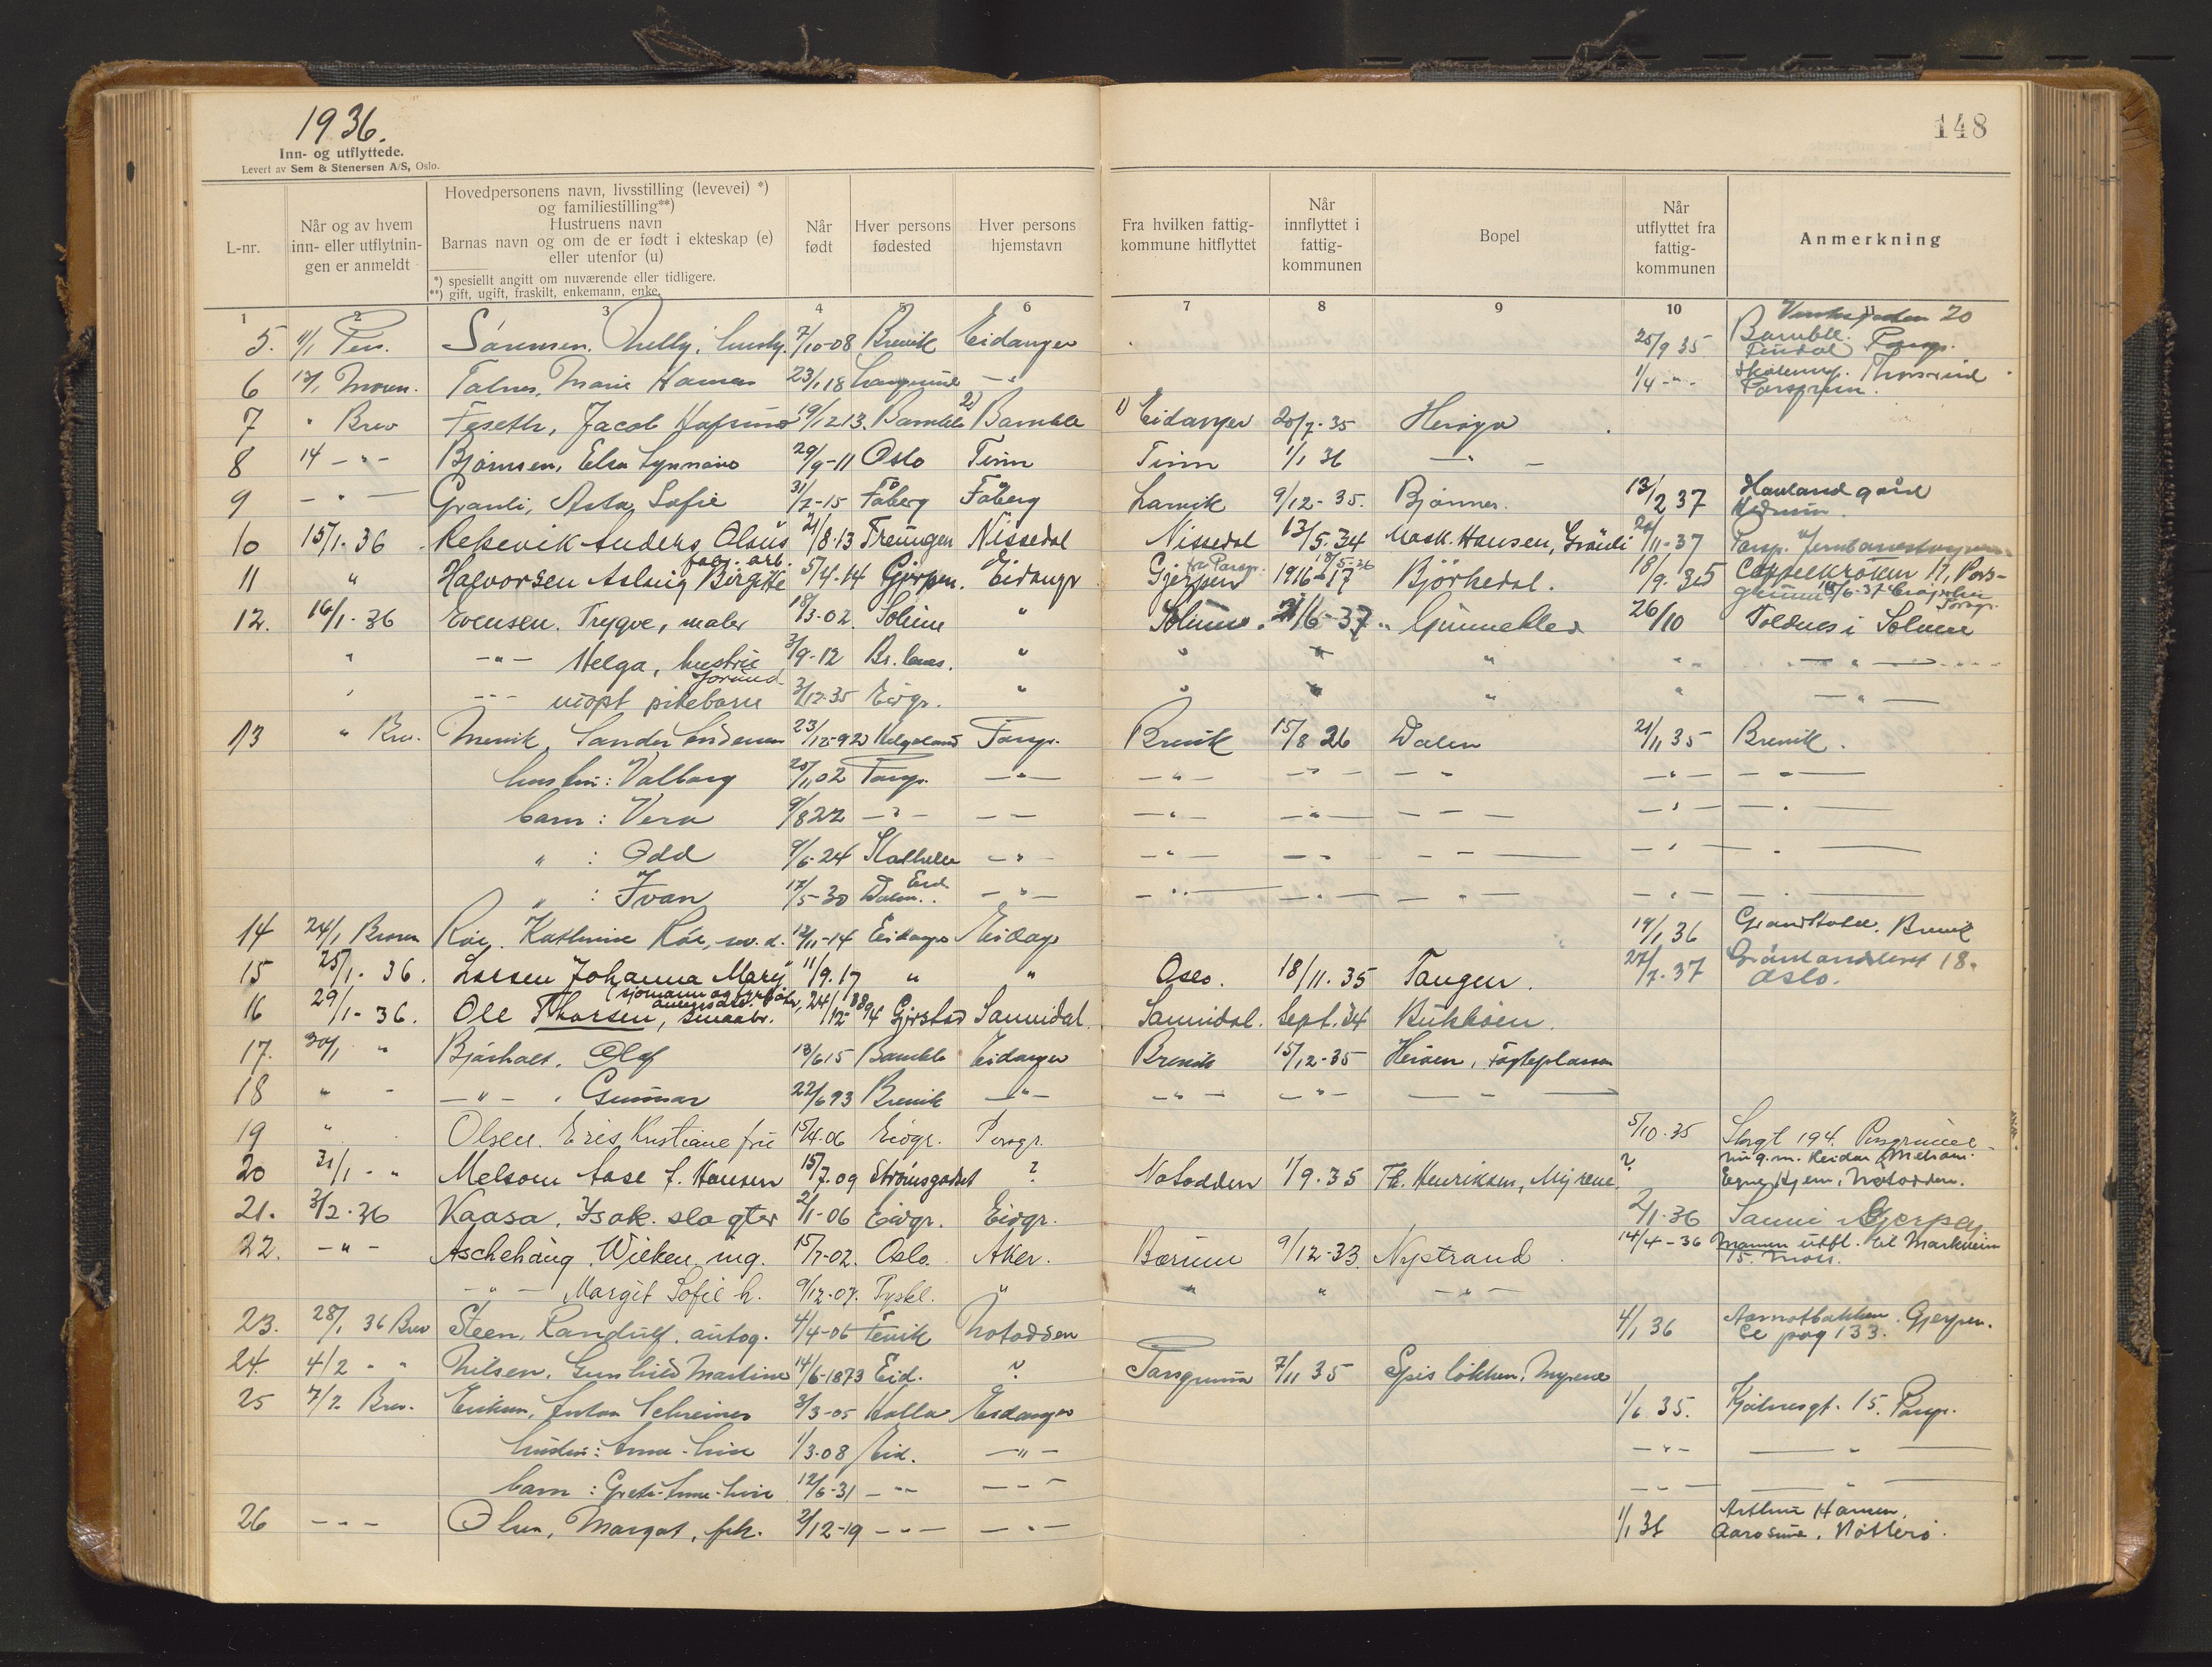 1936.
148
Inn- og utflyttede.
Levert av Sem & Stenersen A/S, Oslo.
L-nr.
Når og av hvem inn- eller utflytnin- gen er anmeldt
Hovedpersonens navn, livsstilling (levevei) *) og familiestilling**)
Hustruens navn
Barnas navn og om de er født i ekteskap (e) eller utenfor (u)
*) spesiellt angitt om nuværende eller tidligere.
**) gift, ugift, fraskilt, enkemann, enke.
Når født
Hver persons fødested
Hver persons hjemstavn
Fra hvilken fattig- kommune hitflyttet
Når innflyttet i fattig- kommunen
Bopel
Når utflyttet fra fattig- kommunen
Anmerkning
1 2 3 4 5 6 7 8 9 10 11
5. 11/1 Sørensen, Nelly, 7/10-08 Brevik Eidanger 25/9 35 Bamble Porsgr.
6 13/1 Talnes, Marie Hansen 23/1 18 Langesund - " - 1/4 - " -
7 " Brev Feseth, Jacob 19/12 13. Bamble 2) Bamble 1) Eidanger 20/7-35 Herøya
8 14 - " - Bjørnsen, Elsa 29/9-11 Oslo Tinn Tinn 1/1 36 - " -
9 - " - Granli, Asta Sofie 31/7-15 Fåberg Fåberg Larvik 9/12-35. Bjønnes. 13/2 37 Havland gård
10 15/1-36 Rekevik Anders Olaus 21/8-13 Treungen Nissedal Nissedal 13/5-34 Mask. Hansen, Gråtli 24/11-37 Porsgr.
fabr. arb.
11 " Halvorsen Aslaug Birgitte 5/4-14 Gjerpen. Eidangr Gjerpen 1916-17 Bjørkedal. 18/9-35 17, Pors-
fra Porsgr. 18/5-36
12. 16/1-36 Evensen. Trygve, maler 18/3-02. Solum " Solum. 21/6-37 " Gunneklev 26/10 Toldnes i Solum
" - " - Helga, hustru 3/9-12 " " " " - " -
Jorund
" - " - udøpt pikebarn 3/12-35 Eidgr. " " " " - " -
13 " Brev. Sander Andersen 23/12-92 Helgeland Porsgr. Brevik 15/8 26 Dalen 21/11 35 Brevik.
hustru: Valborg 20/11 02 Porsgr. - " - - " - - " - - " - - " - - " -
barn: Vera 9/8 22 - " - - " - - " - - " - - " - - " - - " -
" : Odd 9/6-24 Stathelle - " - - " - - " - - " - - " - - " -
" : Ivan 17/5-30 Dalen Eid. - " - - " - - " - - " - - " - - " -
14 24/1 Broren Roe, Kathrine 12/11-14 Eidanger Eidanger 19/1 36 Grand Hotel, Brevik
15 25/1-36. Larsen Johanna Mary 11/9-17 " " Oslo. 18/11-35 Tangen. 27/7-37 Grønlandsleret 18.
Oslo.
16 29/1-36. Ole Thorsen, smaabr. 24/12 Gjerstad Sannidal Sannidal. Sept. 34 Bukkøen.
17. 30/1 " Bjørholt, Olaf 13/6 15 Bamble Eidanger Brevik 15/12-35 Herøen,
18 " - - " - , Gunnar 22/6 93 Brevik - " - - " - - " - - " -
19 " Olsen. Kristiane fru 15/4-06 Eidgr. Porsgr. 5/10-35 Storgt 194. Porsgrunn
20 31/1 - " Melsom Aase f. Hansen 15/7-09 Strømsgodset ? Notodden 1/9-35 Th. Henriksen, Myrene. ? nu g.m. Reidar Melsom.
Egne Hjem, Notodden.
21. 3/2-36 Kaasa, Isak. slagter 2/1-06 Eidgr. Eidgr. 2/1-36 Sanni Gjerpen
22. - " - Aschehaug. Wieken, ing. 15/7-02. Oslo. Aker. Bærum 9/12-33 Nystrand 14/4-36 Mannen utfl. til Markveien
15. Moss.
- " - Margit Sofie h. 9/12-07. Tyskl. " " " - " -
23. 28/1 36 Brev Steen, Randulf. autog. 4/4-06 Notodden 4/1 36 Gjerpen.
Se pag 133.
24. 4/2 - " Nilsen, Gunhild Martine 14/6-1873 Eid. ? Porsgrunn 7/11 35 Myrene
25 7/2 Brev. Eriksen, Anton Schreiner 3/3-05 Holla Eidanger 1/6 35. Kjølnesgt. 15. Porsgr.
hustru: Anna 1/3-08 Eid. - " - - " - - " -
barn: 12/6-31 - " - - " - - " - - " -
26 - " - Olsen, Margot, frk. 2/12-19 - " - - " - 1/1 36 Arthur Hansen,
Nøtterø.